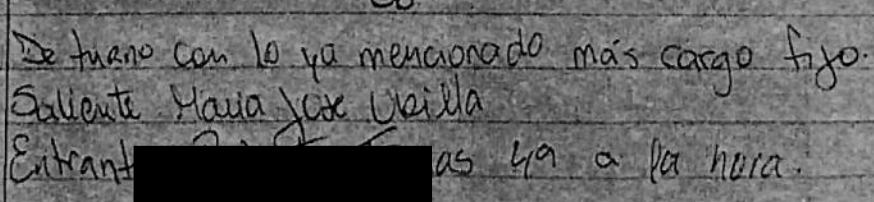 De turno con lo ya mencionado más cargo fijo.
Saliente Maria Jose Ubilla
Entrant as 4a a la hora.